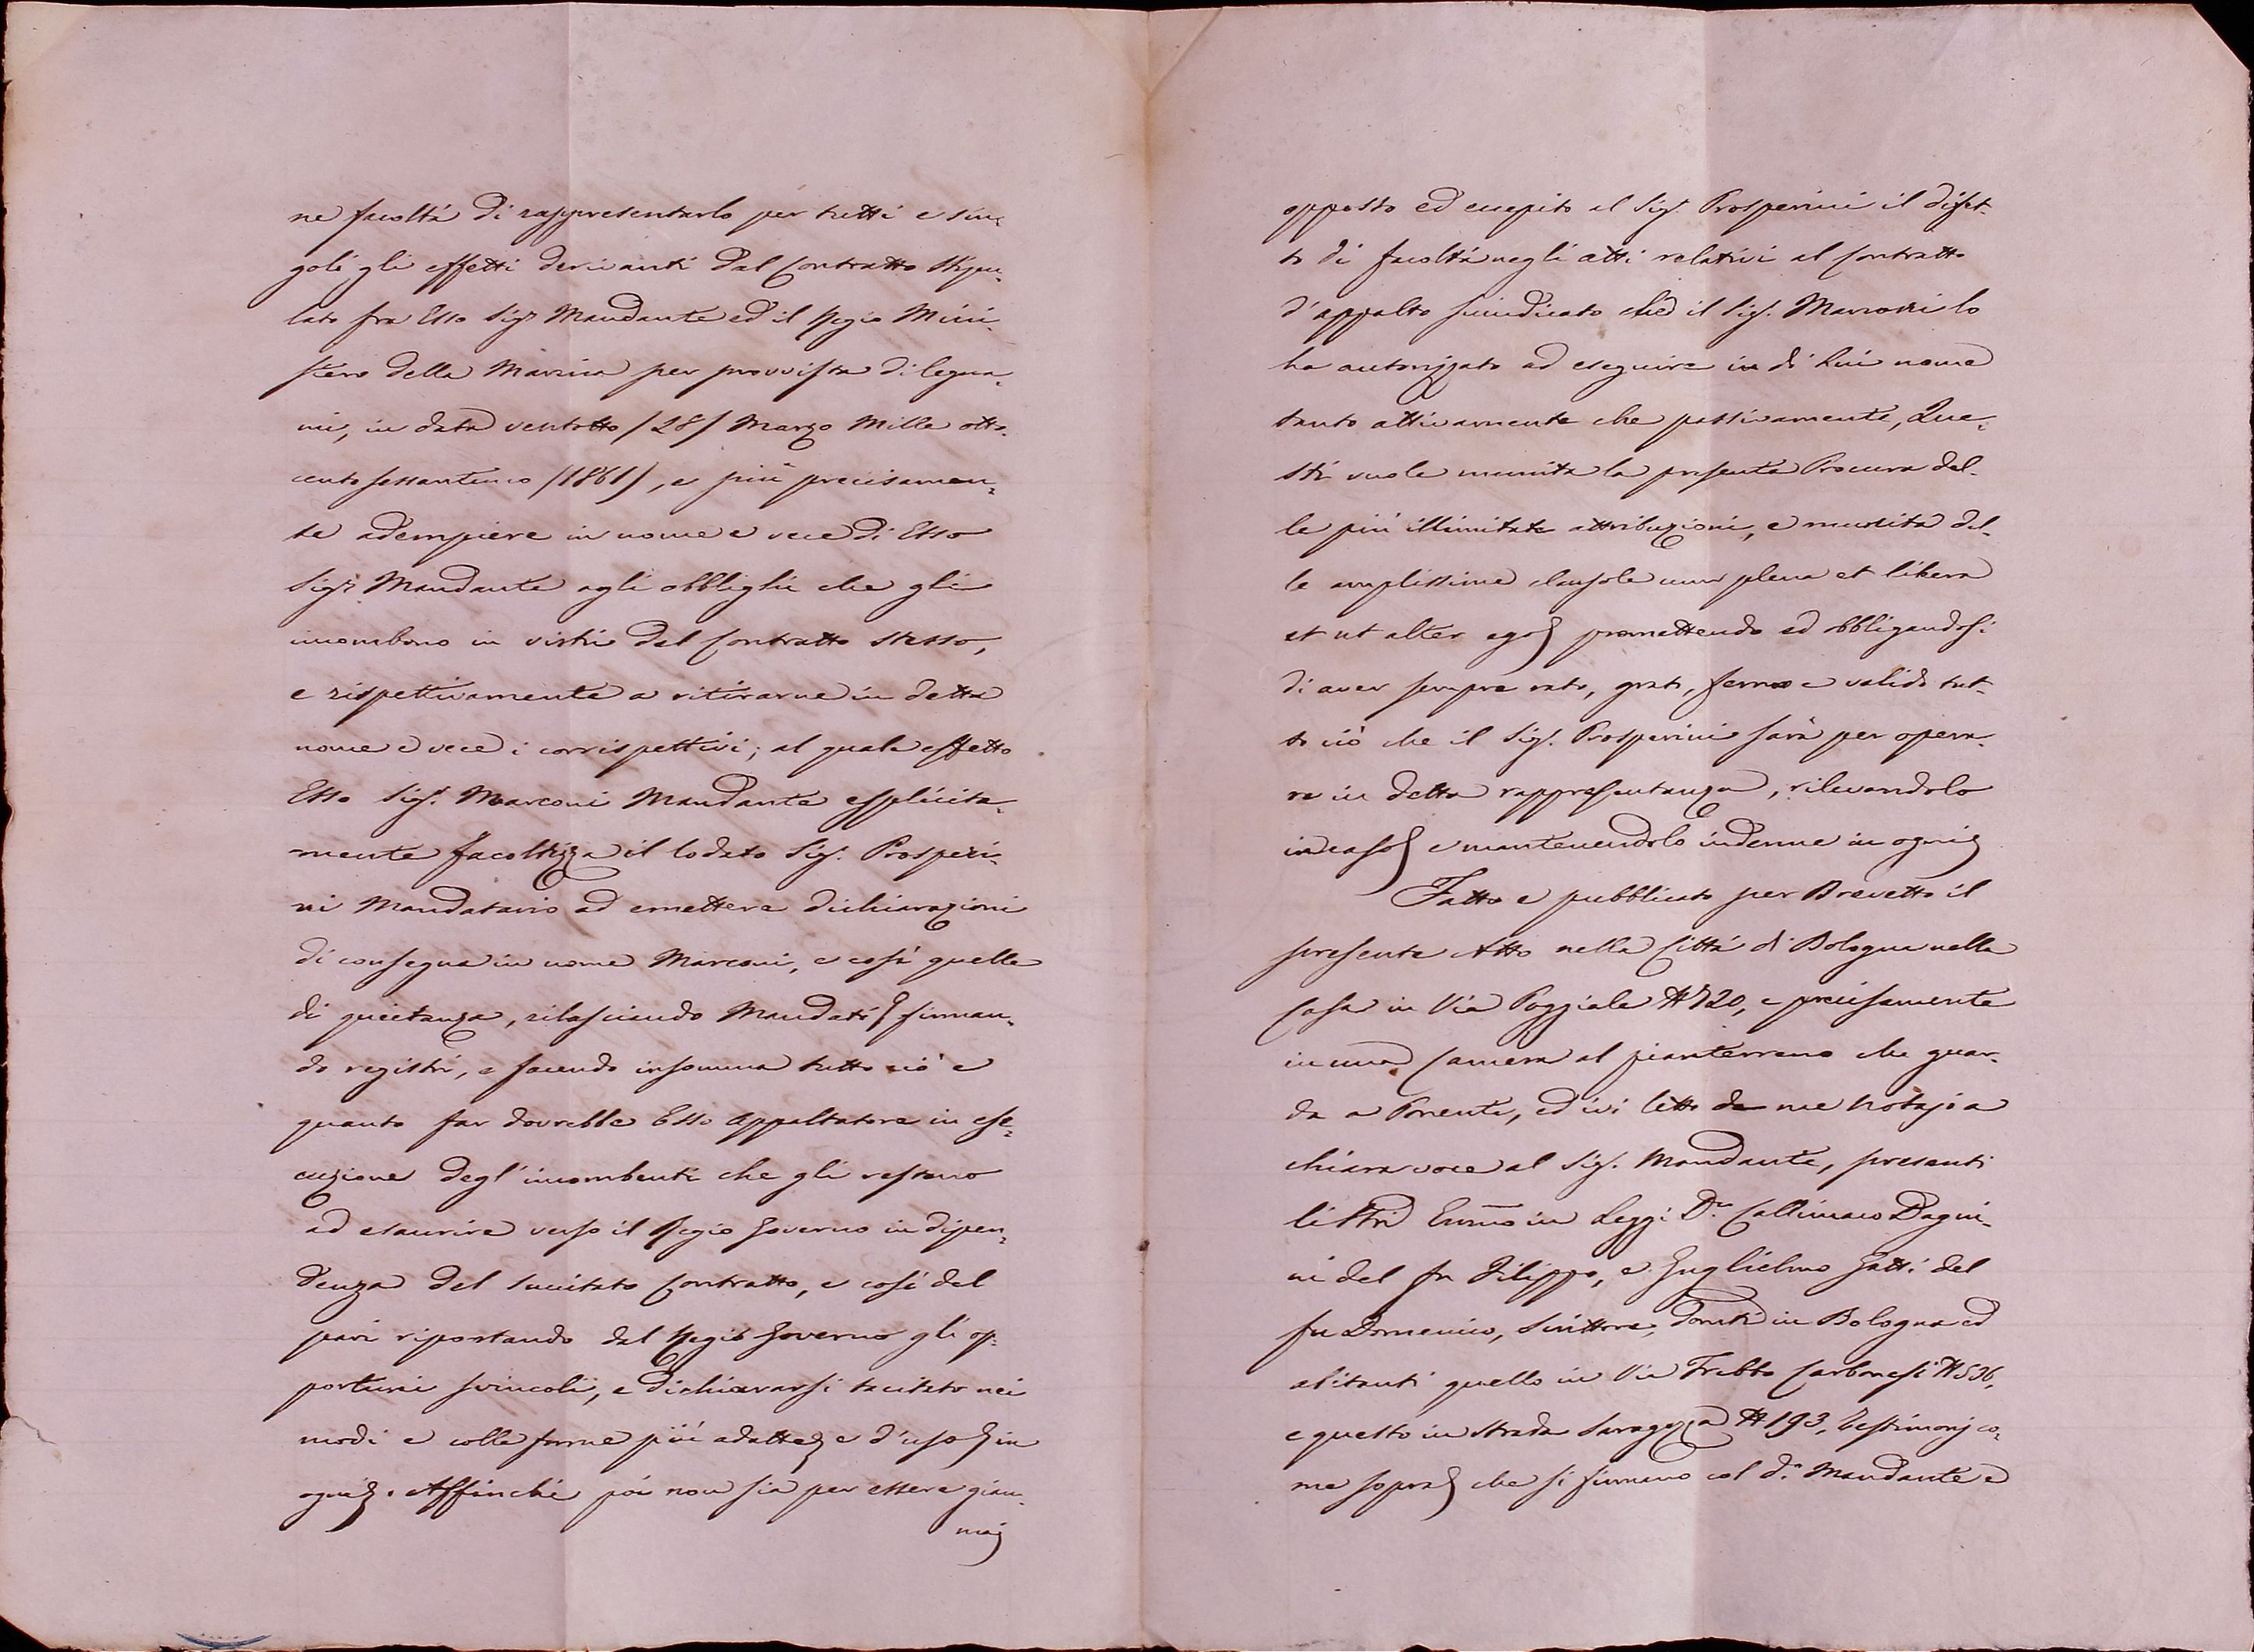 ne facoltà di rappresentarlo per tutti e sin-
goli gli effetti derivanti dal Contratto stipu-
lato fra Esso Sigr. Mandante ed il Regio Mini-
stero della Marina per provvista di legna-
mi, in data ventotto /28/ Marzo Mille otto-
cento sessantuno /1861/, e più precisamen-
te adempiere in nome e vece di Esso
Sigr. Mandante agli obblighi che gli
incombono in virtù del Contratto stesso,
e rispettivamente a ritirarne in detto
nome e vece i corrispettivi; al quale effetto
Esso Sigr. Marconi Mandante esplicita-
mente facoltizza il lodato Sigr. Prosperi-
ni Mandatario ad emettere dichiarazioni
di consegna in nome Marconi, e così quelle
di quietanza, rilasciando Mandati firman-
do registri, e facendo insomma tutto ciò e
quanto far dovrebbe Esso Appaltatore in ese-
cuzione degl'incombenti che gli restano
ad esaurire verso il Regio Governo in dipen-
denza del succitato Contratto, e così del
pari riportando dal Regio Governo gli op-
portuni svincoli, e dichiararsi tacitato nei
modi e colle forme più adatte e d'uso in
ogni. Affinchè poi non sia per essere giam-
mai
opposto ed eccepito al Sigr. Prosperini il difet-
to di facoltà negli atti relativi al Contratto
d'appalto suindicato che il Sigr. Marconi lo
ha autorizzato ad eseguire in di Lui nome
tanto attivamente che passivamente, Que-
sti vuole munita la presente Procura del-
le più illimitate attribuzioni, e munita del-
le amplissime clausole cum plena et libera
et ut alter ego promettendo ed obbligandosi
di aver sempre rato, grato, fermo e valido tut-
to ciò che il Sigr. Prosperini sarà per opera-
re in detta rappresentanza, rilevandolo
in caso e mantenendolo indenne in ogni
Fatto e pubblicato per Brevetto il
presente Atto nella Città di Bologna nella
Casa in Via Poggiale N 720, e precisamente
in una Camera al pianterreno che guar-
da a Ponente, ed ivi letto da me Notajo a
chiara voce al Sigr. Mandante, presenti
li in Leggi Dr. Callimaco Dagni-
ni del fu Filippo, e Guglielmo Gatti del
fu Domenico, Scrittore, domti in Bologna ed
abitanti quello in Via Trebbo Carbonesi N 536,
e questo in Strada Saragozza N 193, Testimonj co-
me sopra che si firmano col do. Mandante e